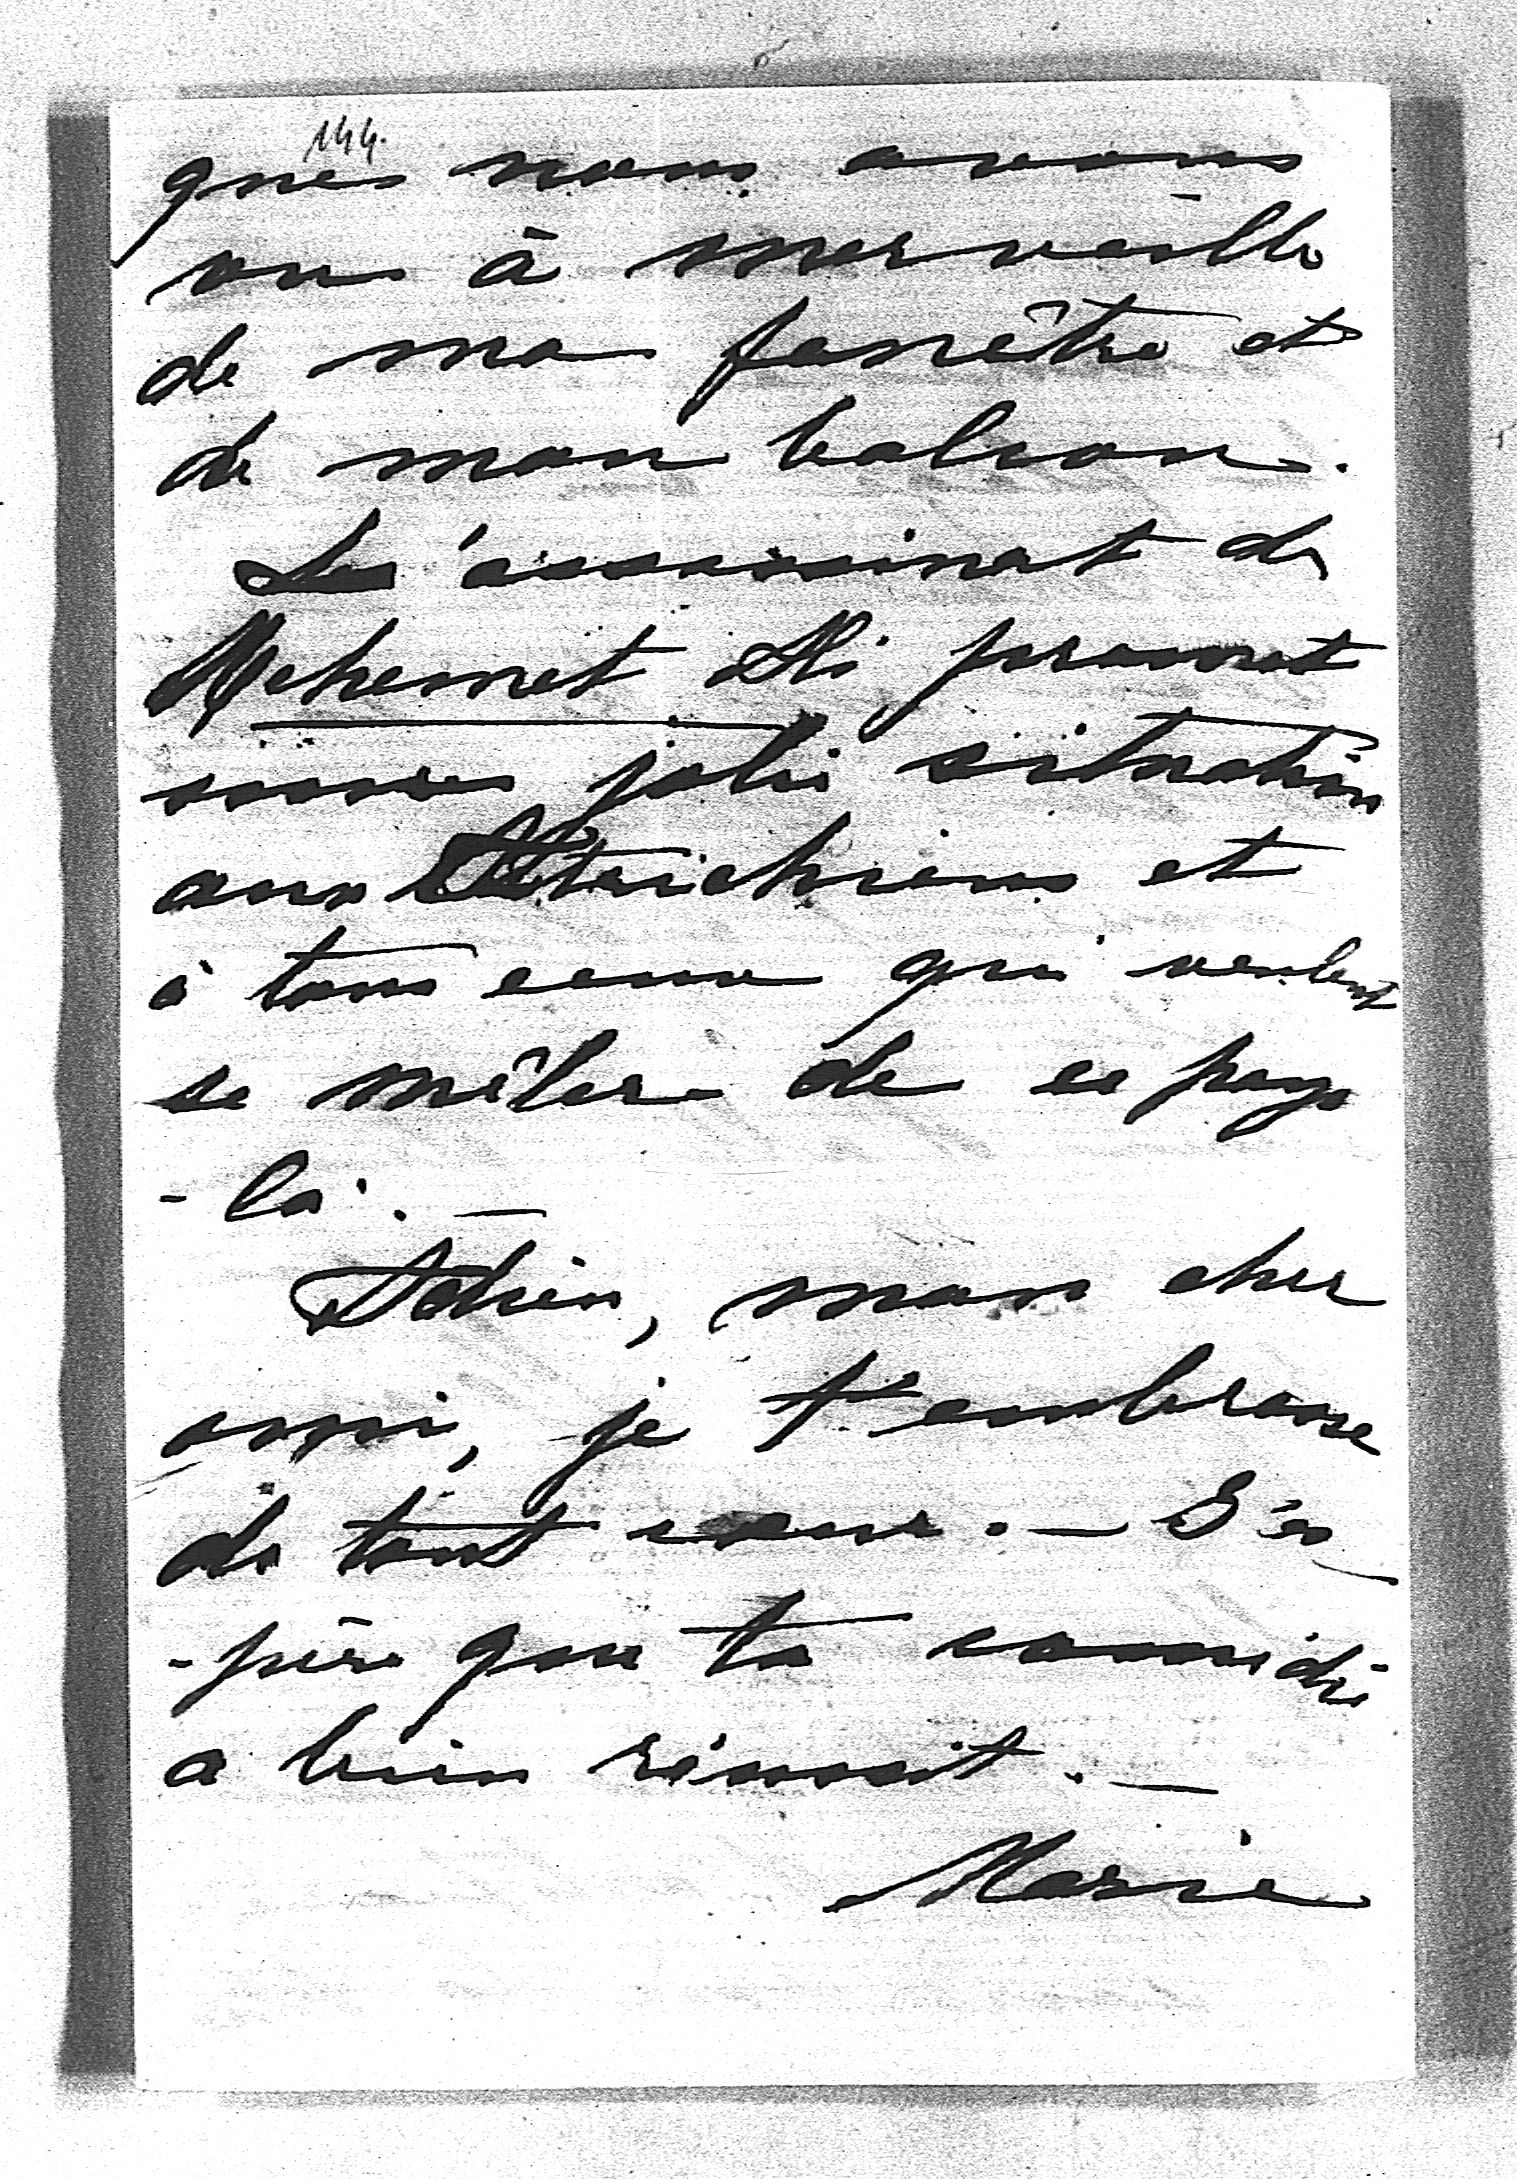 144.
que nous avons
vu à merveille
de ma fenêtre et
de mon balcon.
L'assassinat de
Mehemet Ali promet
une jolie situation
aux Autrichiens et
à tous ceux qui veulent
se mêler de ce pays
- là. —
Adieu, mon cher
ami, je t'embrasse
de tout cœur. — J'es
- père que ta comédie
a bien réussit. —
Marie